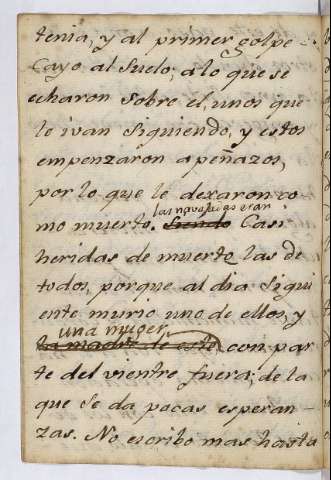 tenia, y al primer golpe
Cayo al suelo; a lo que se
echaron sobre el, unos que
le ivan siguiendo, y estos
empenzaron a peñazos,
por lo que le dexaron co
mo muerto. las navajas eran
Siendo Casi
heridas de muerte las de
todos, porque al dia sigui
ente murio uno de ellos, y
una muger,
la madre de este con par
te del vientre fuera; de la
que se da pocas esperan-
zas. No escribo mas hasta